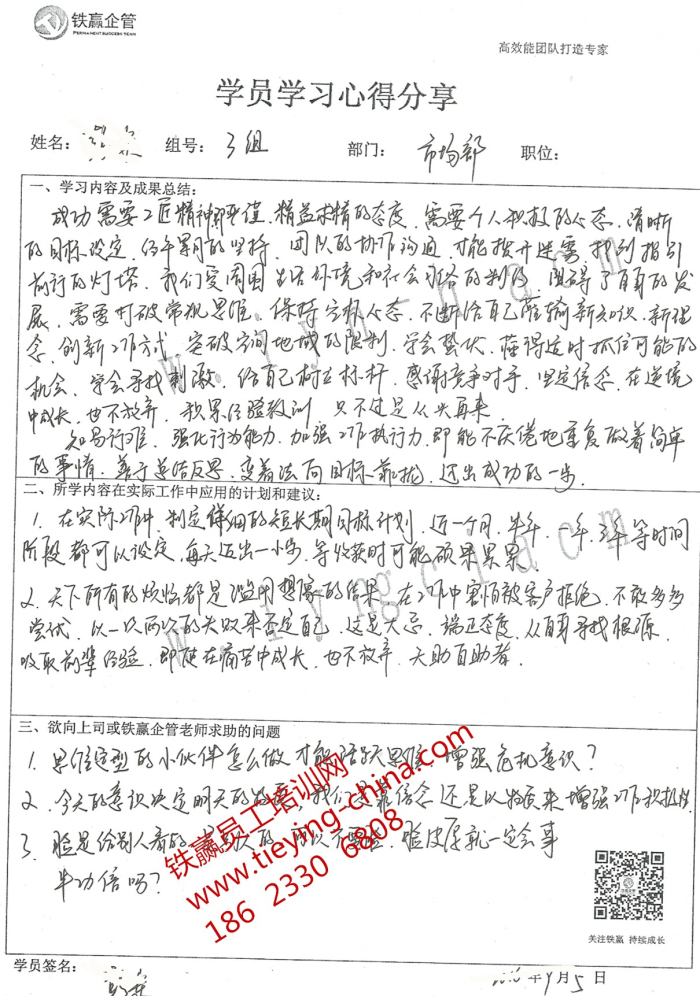 铁赢企管
PERMANENT SUCCESS TEAM
高效能团队打造专家
学员学习心得分享
姓名: 组号: 3组 部门: 市场部 职位:
一、学习内容及成果总结:
成功需要工匠精神 精益求精的态度、需要个人积极的心态、清晰
的目标设定、经年累月的坚持、团队的协作沟通、才能拨开迷雾、找到指引
前行的灯塔、我们受周围生活环境和社会 的制约、阻碍了自身的发
展、需要打破常规思维、保持 心态、不断给自己灌输新知识、新理
念、创新工作方式、突破空间地域的限制、学会蛰伏、懂得适时抓住可能的
机会、学会寻找刺激、给自己树立标杆、感谢竞争对手、坚定信念、在逆境
中成长、也不放弃、积累经验教训、只不过是从头再来
知易行难、强化行为能力、加强工作执行力、即能不厌倦地重复做着简单
的事情、善于总结反思、变着法向目标靠拢、迈出成功的一步.
二、所学内容在实际工作中应用的计划和建议:
1. 在实际工作中,制定详细的短长期目标计划、近一个月、半年、一年、三年等时间
阶段都可以设定、每天迈出一小步、等收获时可能硕果累累
2. 天下所有的烦恼都是滥用想象的结果、在工作中害怕被客户拒绝、不敢多多
尝试、以一次两次的失败来否定自己、这是大忌、端正态度、从自身寻找根源、
吸取前辈经验、即使在痛苦中成长、也不放弃、天助自助者.
三、欲向上司或铁赢企管老师求助的问题
1. 思维定型的小伙伴怎么做才能 思维、增强危机意识?
2. 今天的意识决定明天的 ,我们是靠信念还是以物质来增强工作积极性
3. 脸是给别人看的, 脸皮厚就一定会事
半功倍吗?
铁赢员工培训网
www.tieying-china.com
186 2330 6808
关注铁赢 持续成长
学员签名:
年9月5日